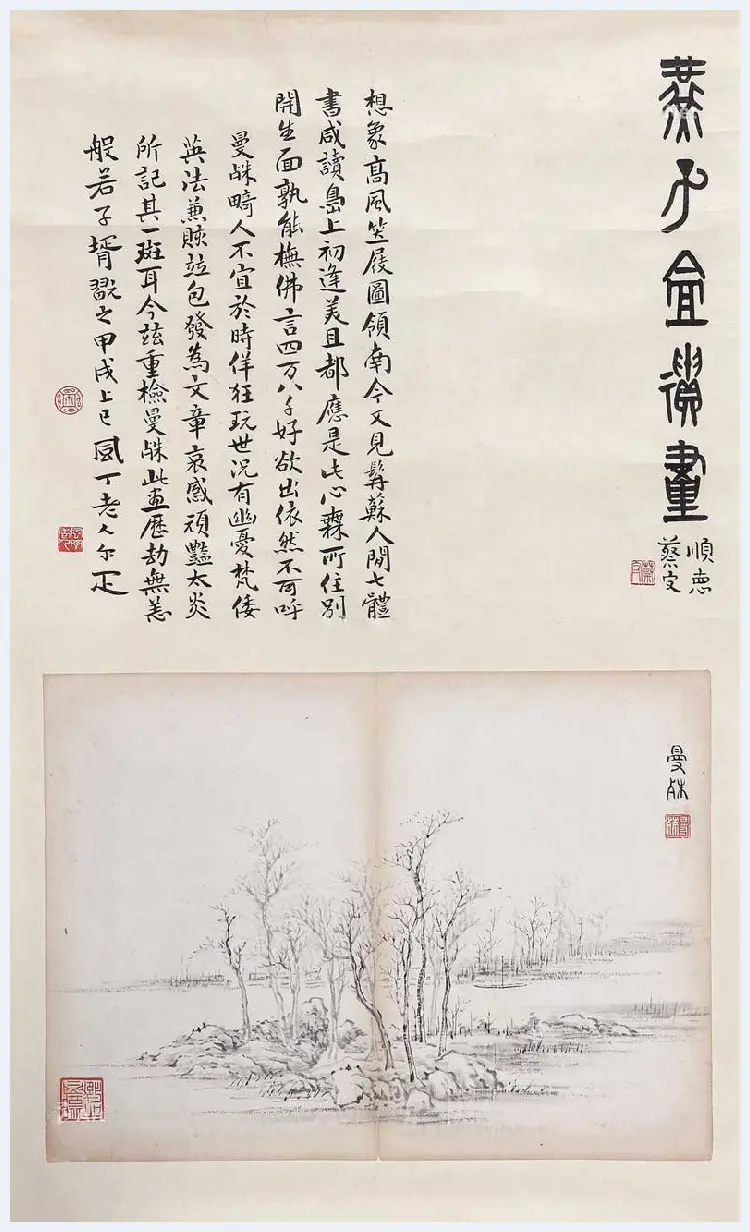 燕子龕遺畫
順悳
蔡守
想象高風笠屐圖領南今又見髯蘇人間七體
書咸讀島上初逢美且都應是此心無所住別
開生面孰能橅佛言四万八千好欲出依然不可呼
曼殊畸人不宜於時佯狂玩世况有幽憂梵倭
英法兼賅竝包發為文章哀感頑豔太炎
所記其一斑耳今兹重檢曼殊此畫歷劫無恙
般若子壻戲之甲戌上巳風丁老人尔疋
曼殊